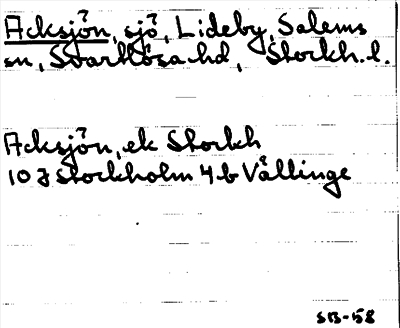 Acksjön, sjö, Lideby, Salems
sn, Svartlösa hd, Stockh. l.
Acksjön, ek Stockh
10 I Stockholm 4 b Vållinge
SB-58